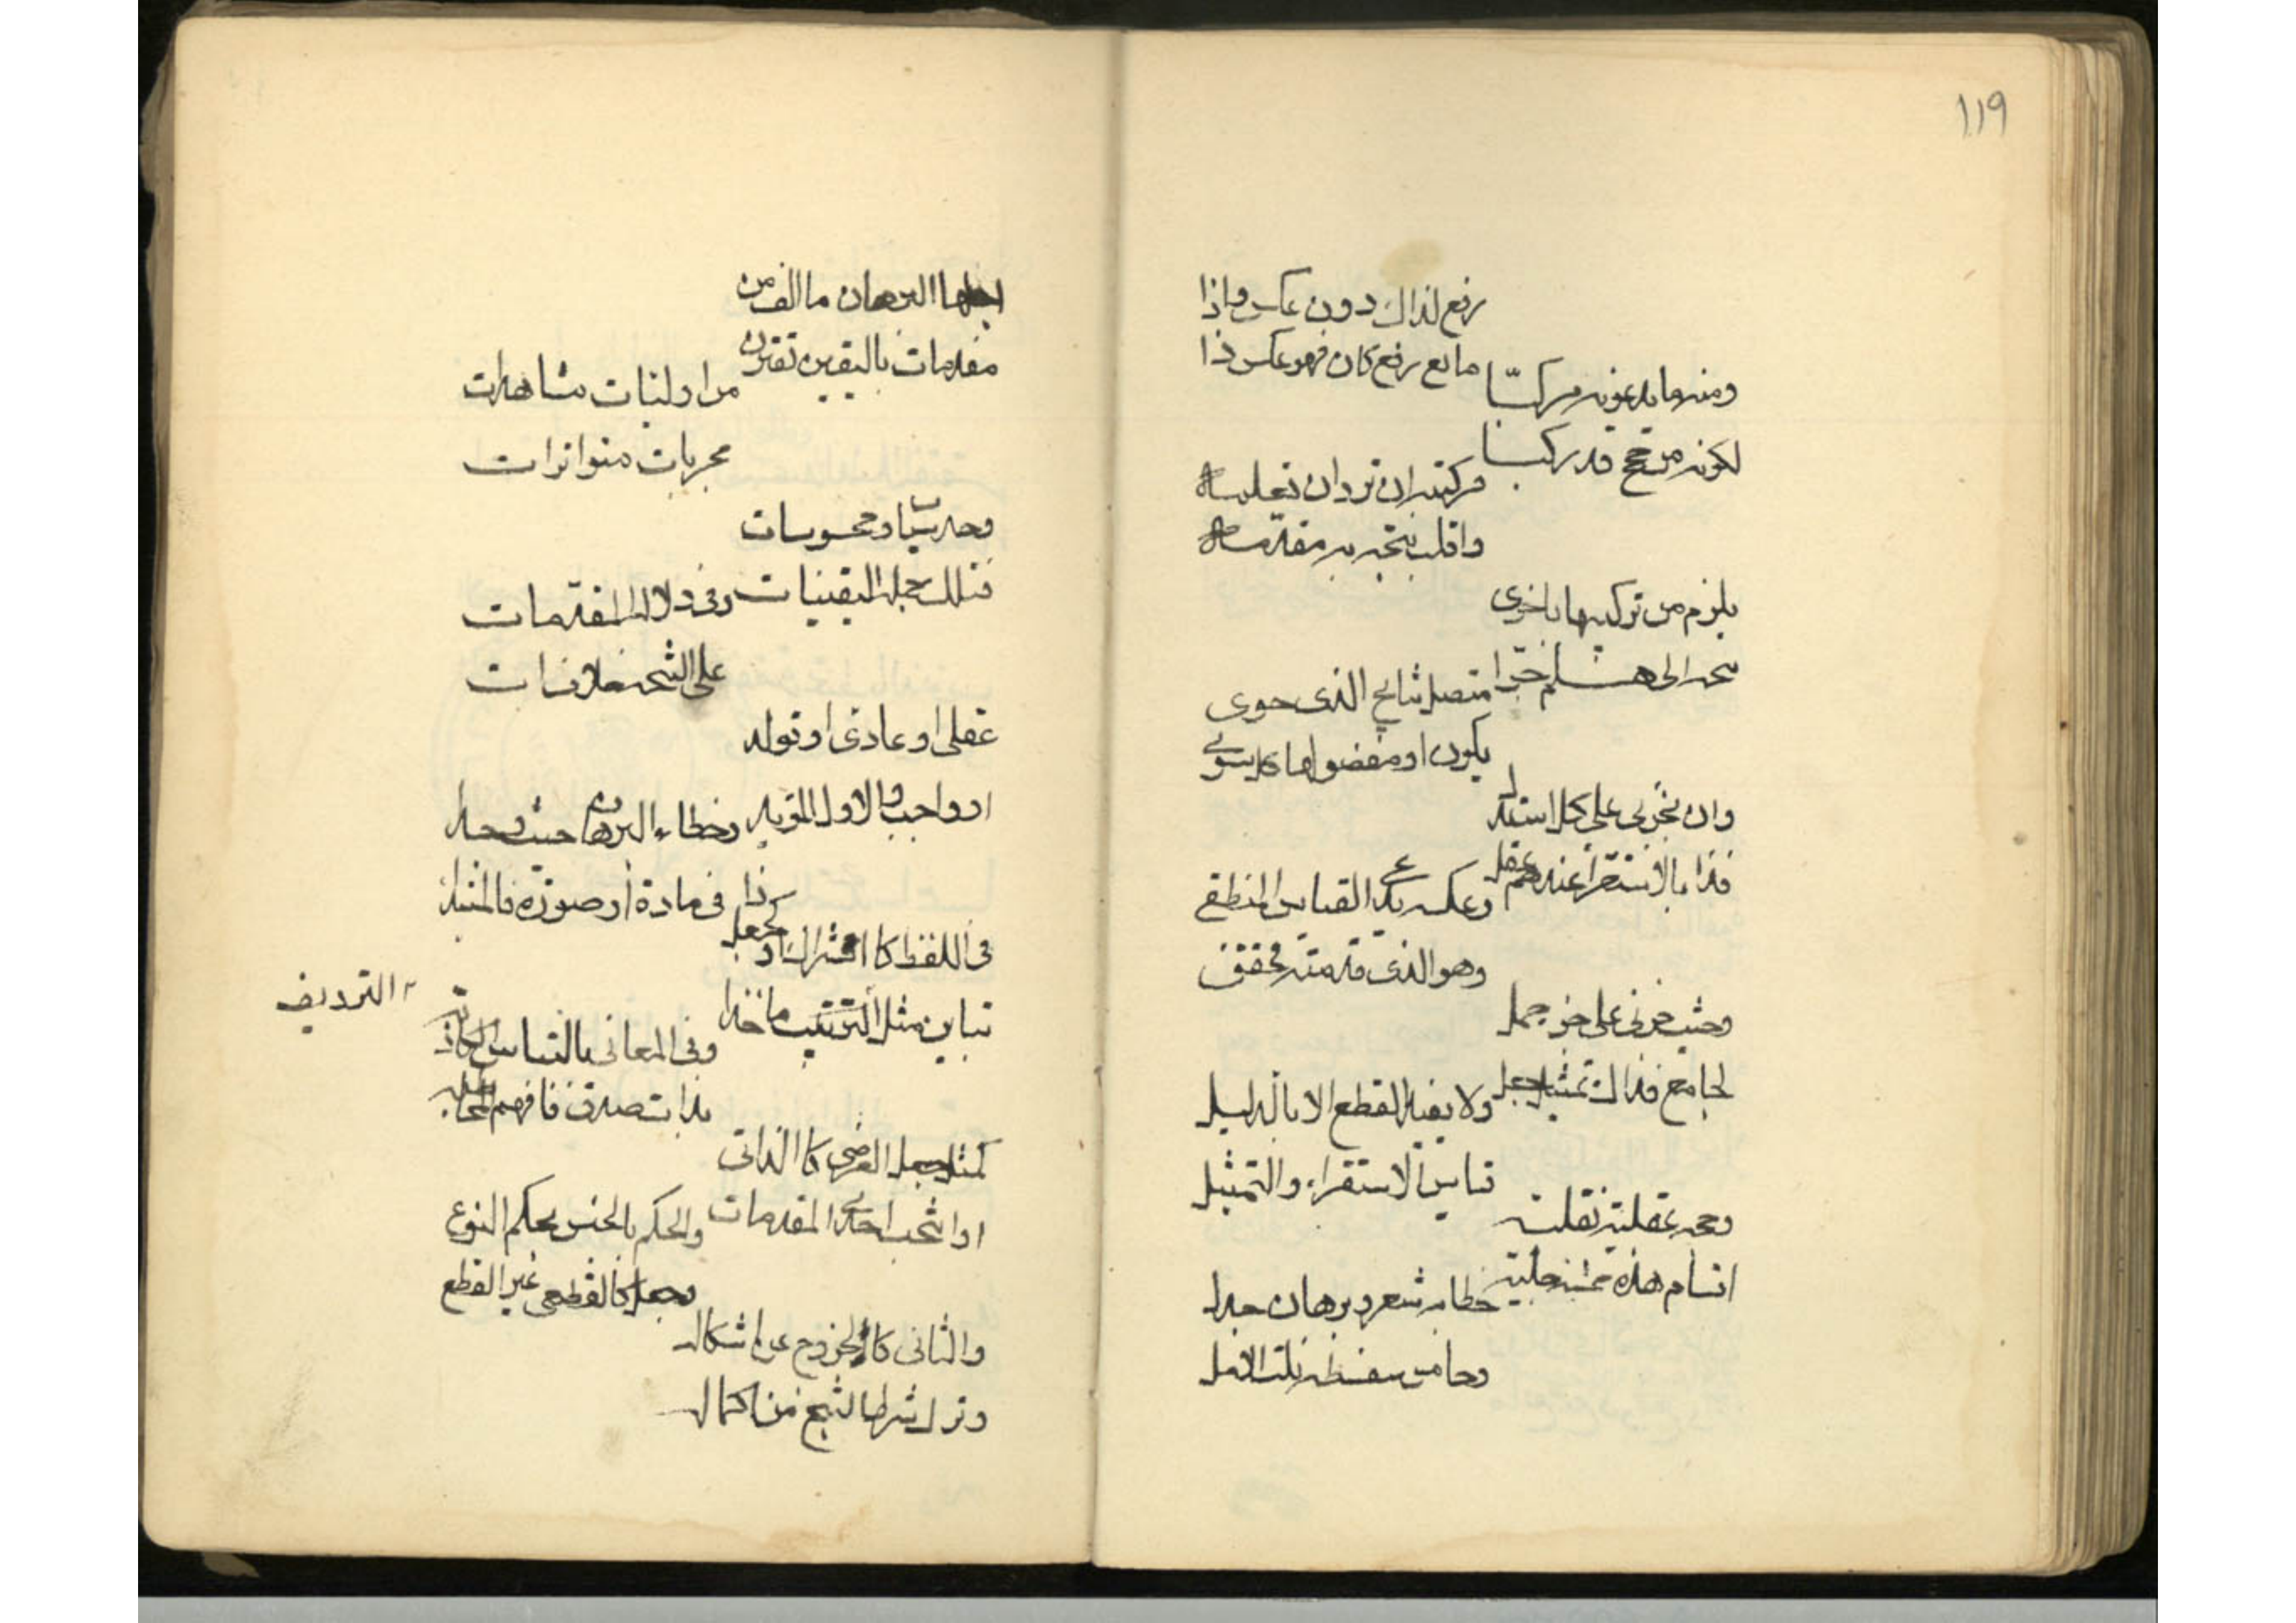 ١١٩
رفع لذاك دون عكس واذا
مانع رفع كان فهو عكس ذا
ومنه ما يدعونه مركبّا
لكونه من حجج قد ركبا
فركبنه ان ترد ان تعلمه
واقلب نتيجة به مقدمه
يلزم من تركيبها باخرى
نتيجة الى هلم جرّا
متصل نتائج الذى حوى
يكون او مفصولها كل سوى
وان بجزئى على كل استدل
فذا بالاستقراء عندهم عقل
وعكسه يدعى القياس المنطقى
وهو الذى قدمته فحقق
وحيث جزئى على جز حمل
لجامع فذاك تمثيل جعل
ولا يفيد القطع الا بالدليل
قياس الاستقراء والتمثيل
وحجه عقلية نقلية
اقسام هذه خمسة جلية
خطابه شعر وبرهان جدل
وخامس سفسطه نلت الامل
اجلها البرهان ما الف من
مقدمات باليقين تقترن
من اوليات مشاهدات
مجربات متواترات
وحدسيات ومحسوسات
فتلك جملة اليقينيات
وفى دلالة المقدمات
على النتيجه خلاف ات
عقلى او عادى او تولد
او واجب والاول المؤيد
وخطاء البرهان حيث وجدا
فى مادة او صورة فالمبتدا
فى اللفظ كاشتراك او كجعل ذا
تباين مثل الترتيب ماخذا
الترديف
وفى المعانى بالتباس الكاذبه
بذات صدق فافهم المخاطبه
كمثل جعل العرضى كالذاتى
او ناتج احدى المقدمات
والحكم بالجنس بحكم النوع
وجعل كالقطعى غير القطع
والثانى كالخروج عن اشكاله
وترك شرط النتج من اكماله